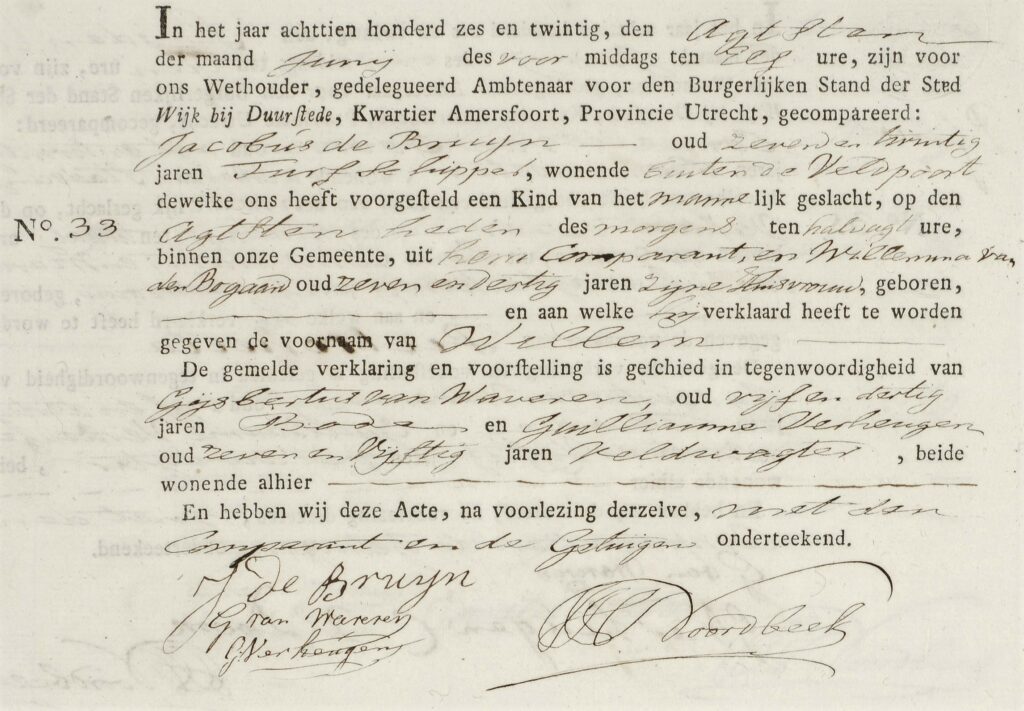 In het jaar achttien honderd zes en twintig, den Agtsten
der maand Junij des voor middags ten Elf ure, zijn voor
ons Wethouder, gedelegueerd Ambtenaar voor den Burgerlijken Stand der Sted
Wijk bij Duurstede, Kwartier Amersfoort, Provincie Utrecht, gecompareerd:
Jacobus de Bruijn — oud zeven en twintig
jaren Turfschipper, wonende buiten de Veldpoort
dewelke ons heeft voorgesteld een Kind van het mannelijk geslacht, op den
No. 33 Agtsten heden des morgens ten half agt ure,
binnen onze Gemeente, uit hem Comparant, en Willemina van
den Bogaard oud zeven en dertig jaren zijne Huisvrouw, geboren,
— en aan welke hij verklaard heeft te worden
gegeven de voornaam van Willem —
De gemelde verklaring en voorstelling is geschied in tegenwoordigheid van
Gijsbertus van Waveren, oud vijf en dertig
jaren Bode en Guilliamme Verheugen
oud zeven en Vijftig jaren Veldwagter, beide
wonende alhier —
En hebben wij deze Acte, na voorlezing derzelve, met den
Comparant en de Getuigen onderteekend.
J de Bruijn
G van Waveren
G Verheugen
Noordbeek